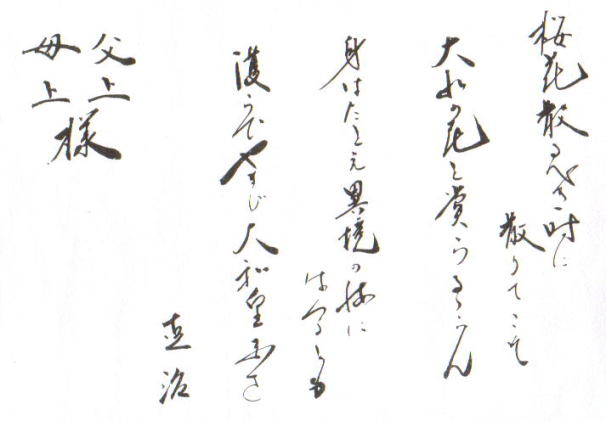 桜花散るべき時に
散りてこそ
大和の花と賞らるらん
身はたとえ異境の
に
はつるとも
護らでやまじ大和皇
直治
父上
母上
様